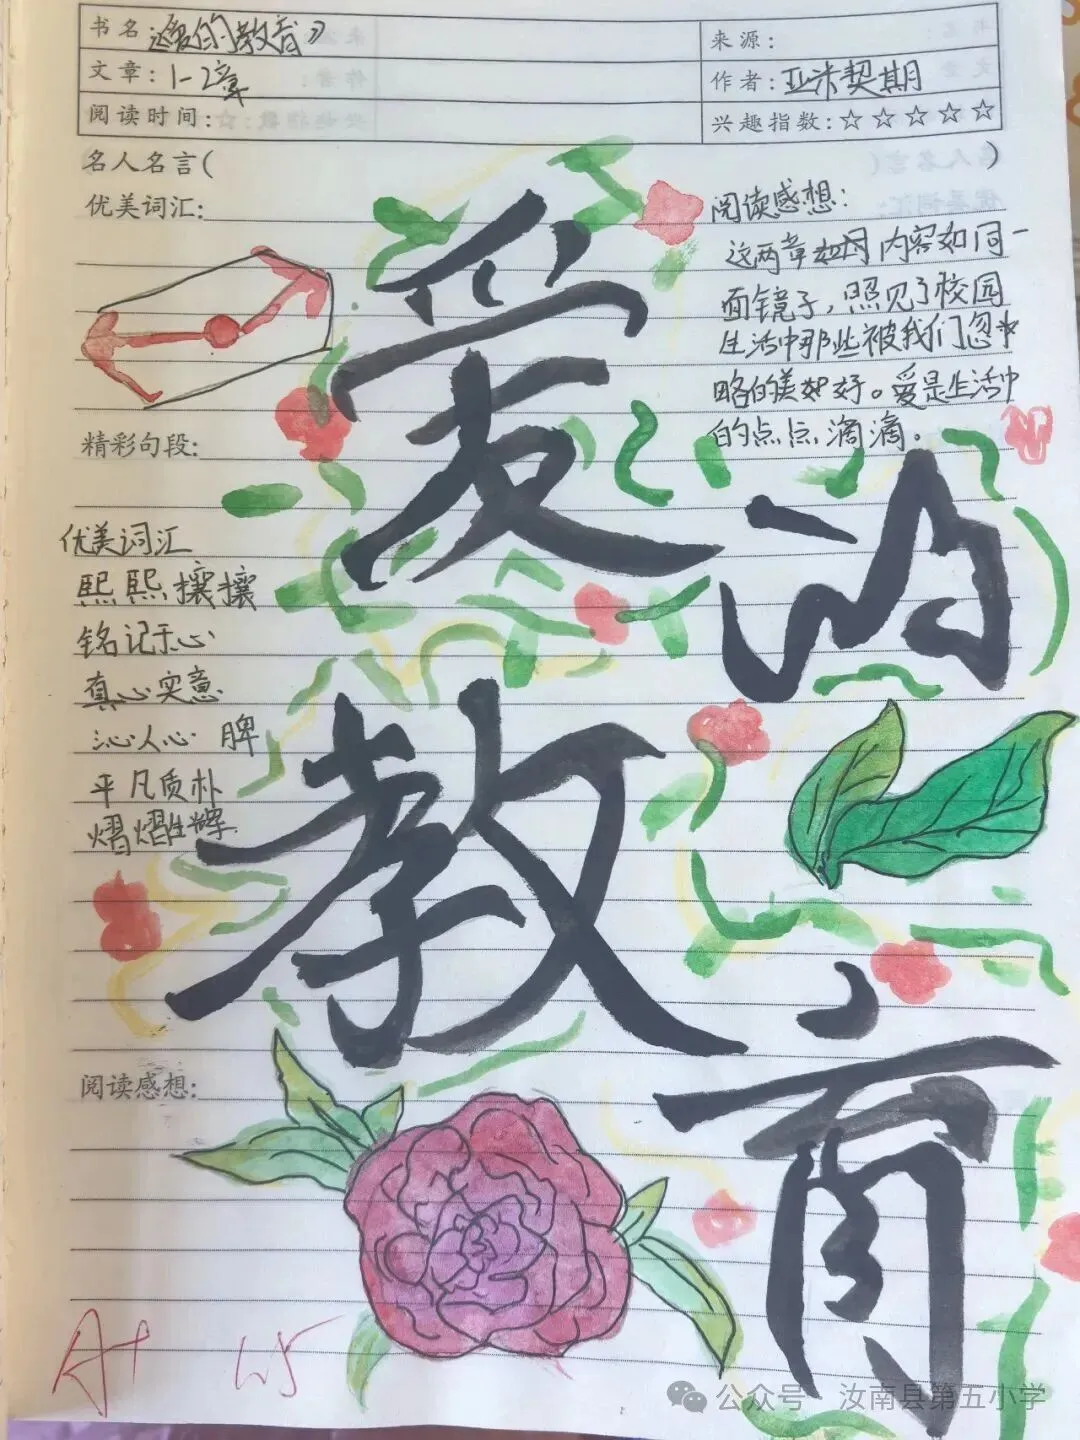 书名《爱的教育》
来源:
文章:1-2章
作者:亚米契斯
阅读时间:☆
兴趣指数:☆☆☆☆☆
名人名言(                    )
优美词汇:
阅读感想:
这两章内容如同一
面镜子,照见了校园
生活中那些被我们忽
略的美好。爱是生活中
的点点滴滴。
精彩句段:
优美词汇
熙熙攘攘
铭记于心
真心实意
沁人心脾
平凡质朴
熠熠生辉
爱的
教育
阅读感想:
A+
公众号 汝南县第五小学